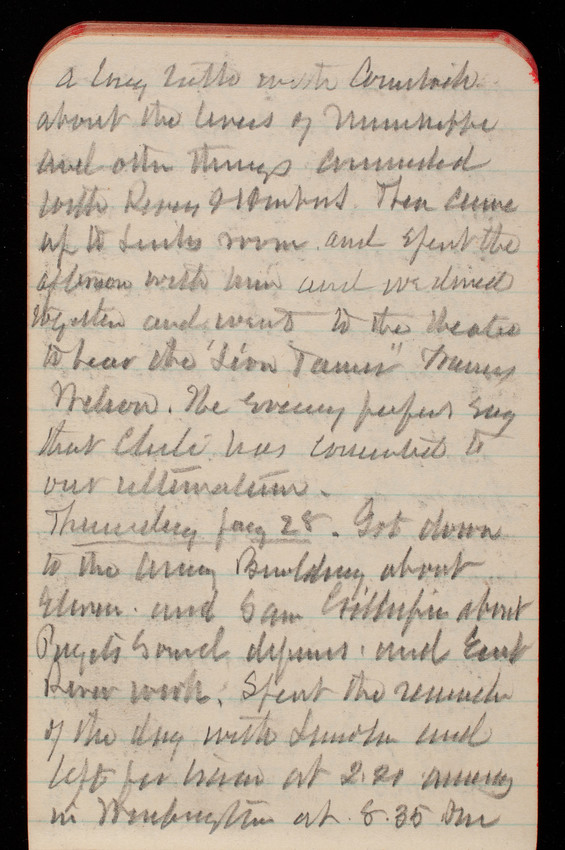 a long talk with Comstock
about the levees of Mississippi
and other things connected
with Rivers & Harbors. Then came
up to room and spent the
afternoon with him and we dined
together and went to the theatre
to hear the "Lion Tamer" Francis
Wilson. The evening papers say
that Chili has consented to
our ultimatum.
Thursday Jany 28. Got down
to the Army Building about
eleven. and saw Gillespie about
Pugets Sound defenses. and East
River work. Spent the remainder
of the day with Lincoln and
left for home at 3.20 arriving
in Washington at 8.35